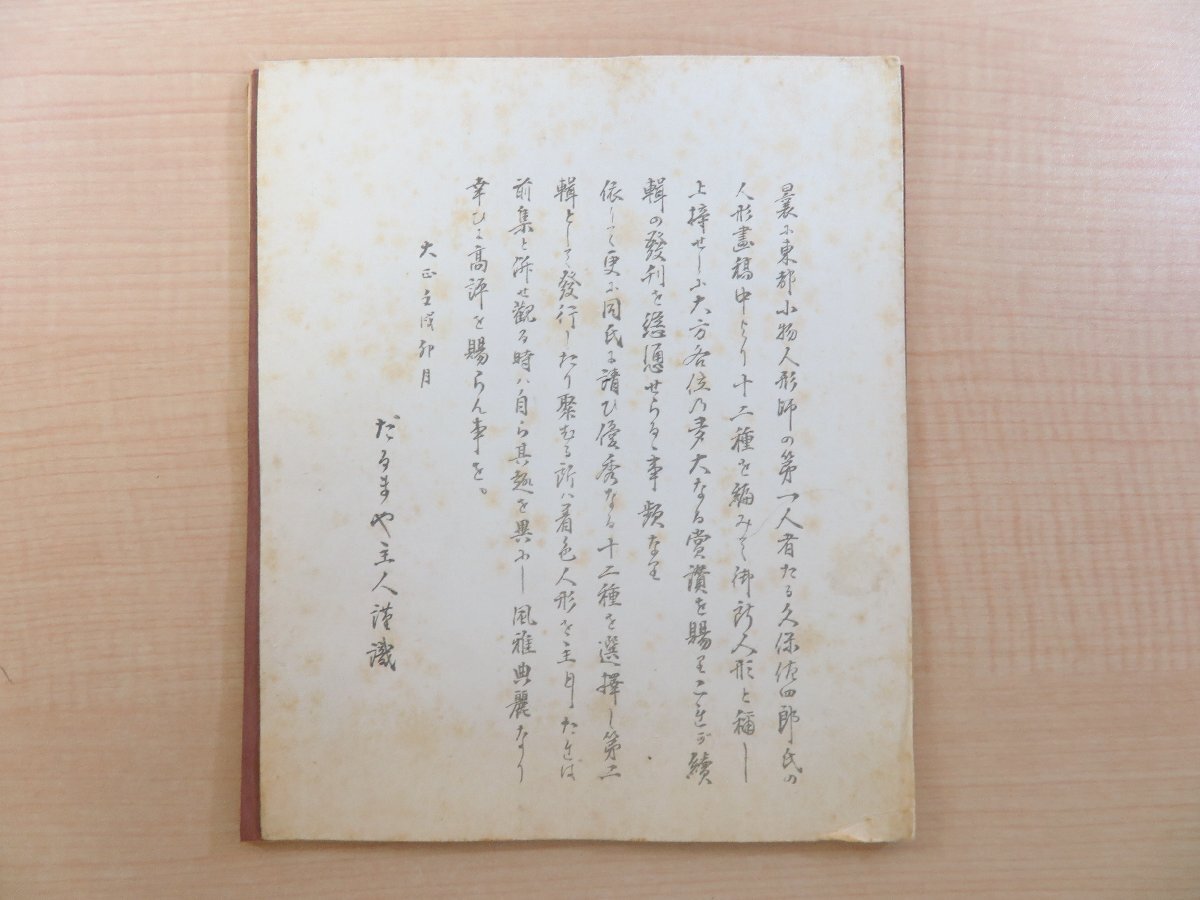 曩に東都小物人形師の第一人者たる久保佐四郎氏の
人形畫稿中より十二種を編みて御所人形と稱し
上梓せしに大方各位の多大なる賞讚を賜りこれが續
輯の發刊を慫慂せらるゝ事頻なり
依して更に同氏に請ひ優秀なる十二種を選擇し第二
輯として發行したり聚むる所ハ着色人形を主ﾄしたれば
前集と併せ觀る時ハ自ら其趣を異にし風雅典麗なり
幸ひに高評を賜らん事を。
大正壬戌卯月
だるまや主人謹識